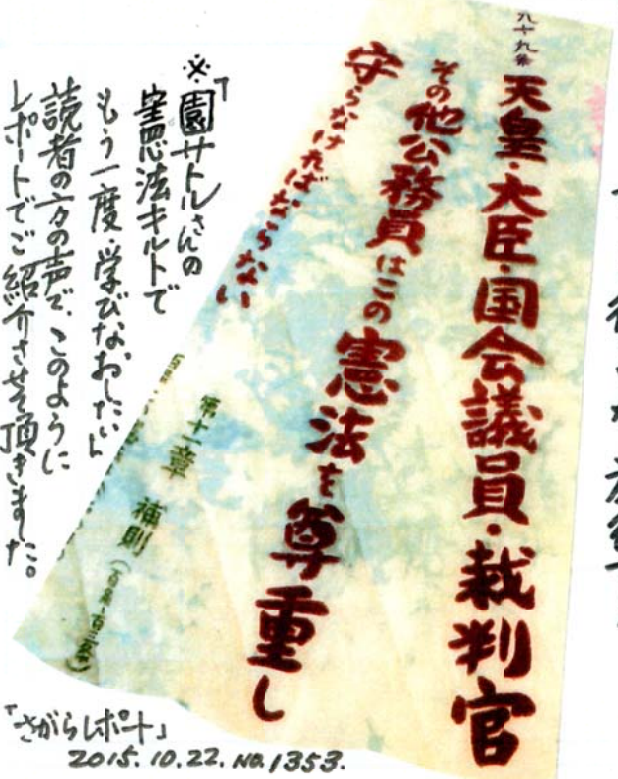 九十九条
天皇・大臣・国会議員・裁判官
その他公務員はこの憲法を尊重し
守らなければならない
第十一章 補則
※「園サトルさんの
憲法キルトで
もう一度、学びなおしたい」
読者の方の声で、このように
レポートでご紹介させて頂きました。
「さがらレポート」
2015.10.22. NO.1353.